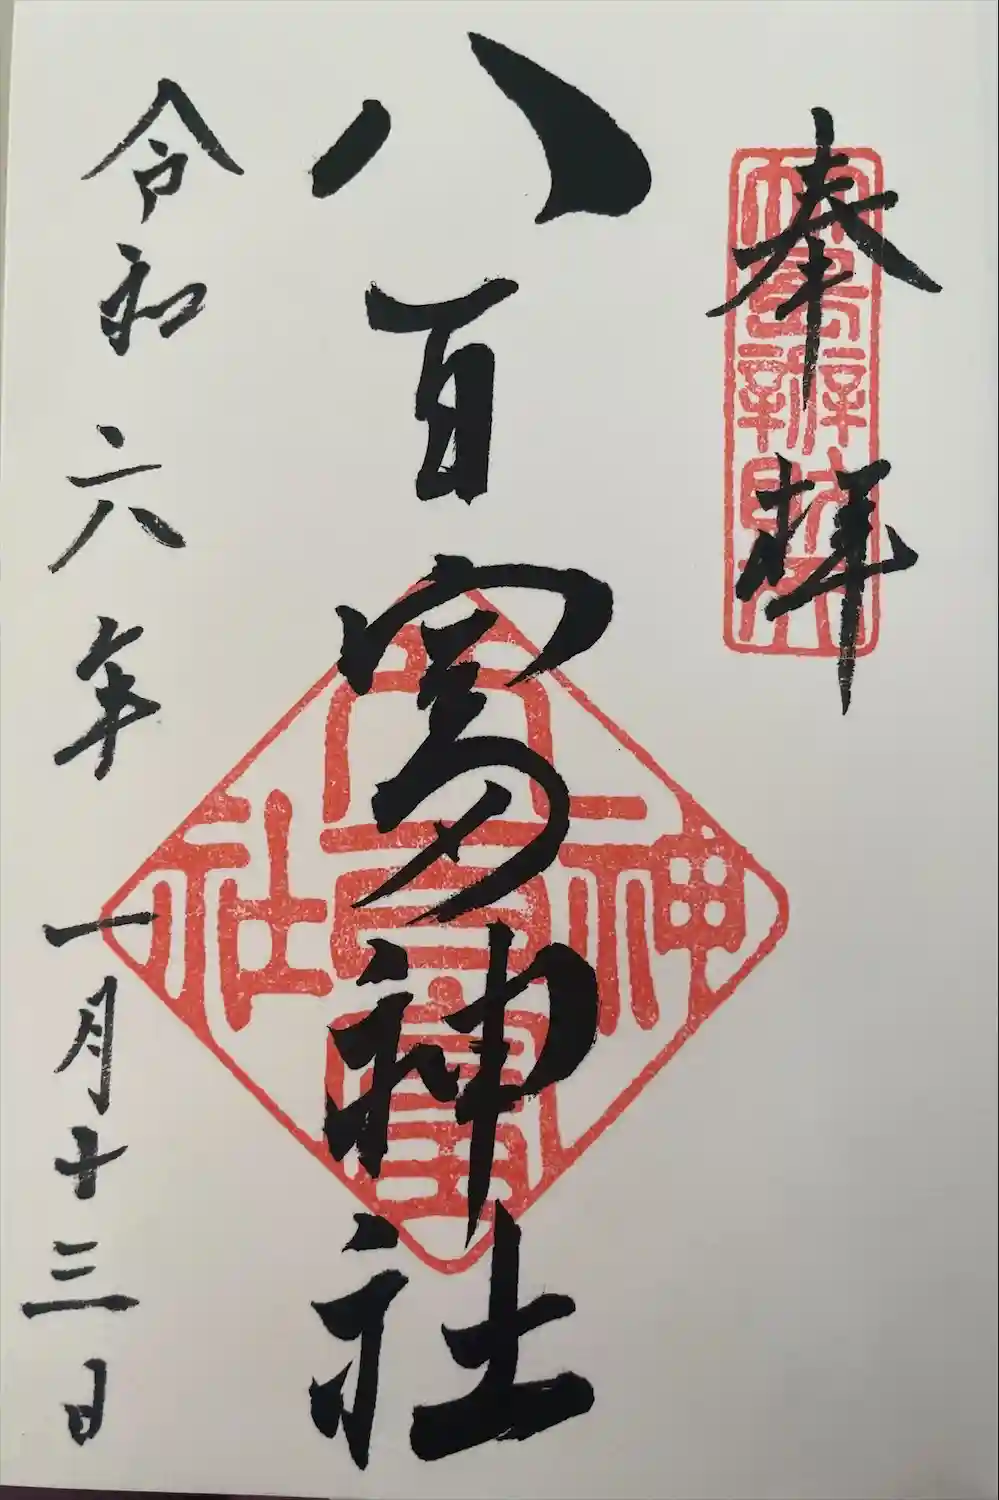 奉拝
竹島辨財天
八百富神社
八百富神社
令和六年一月十三日